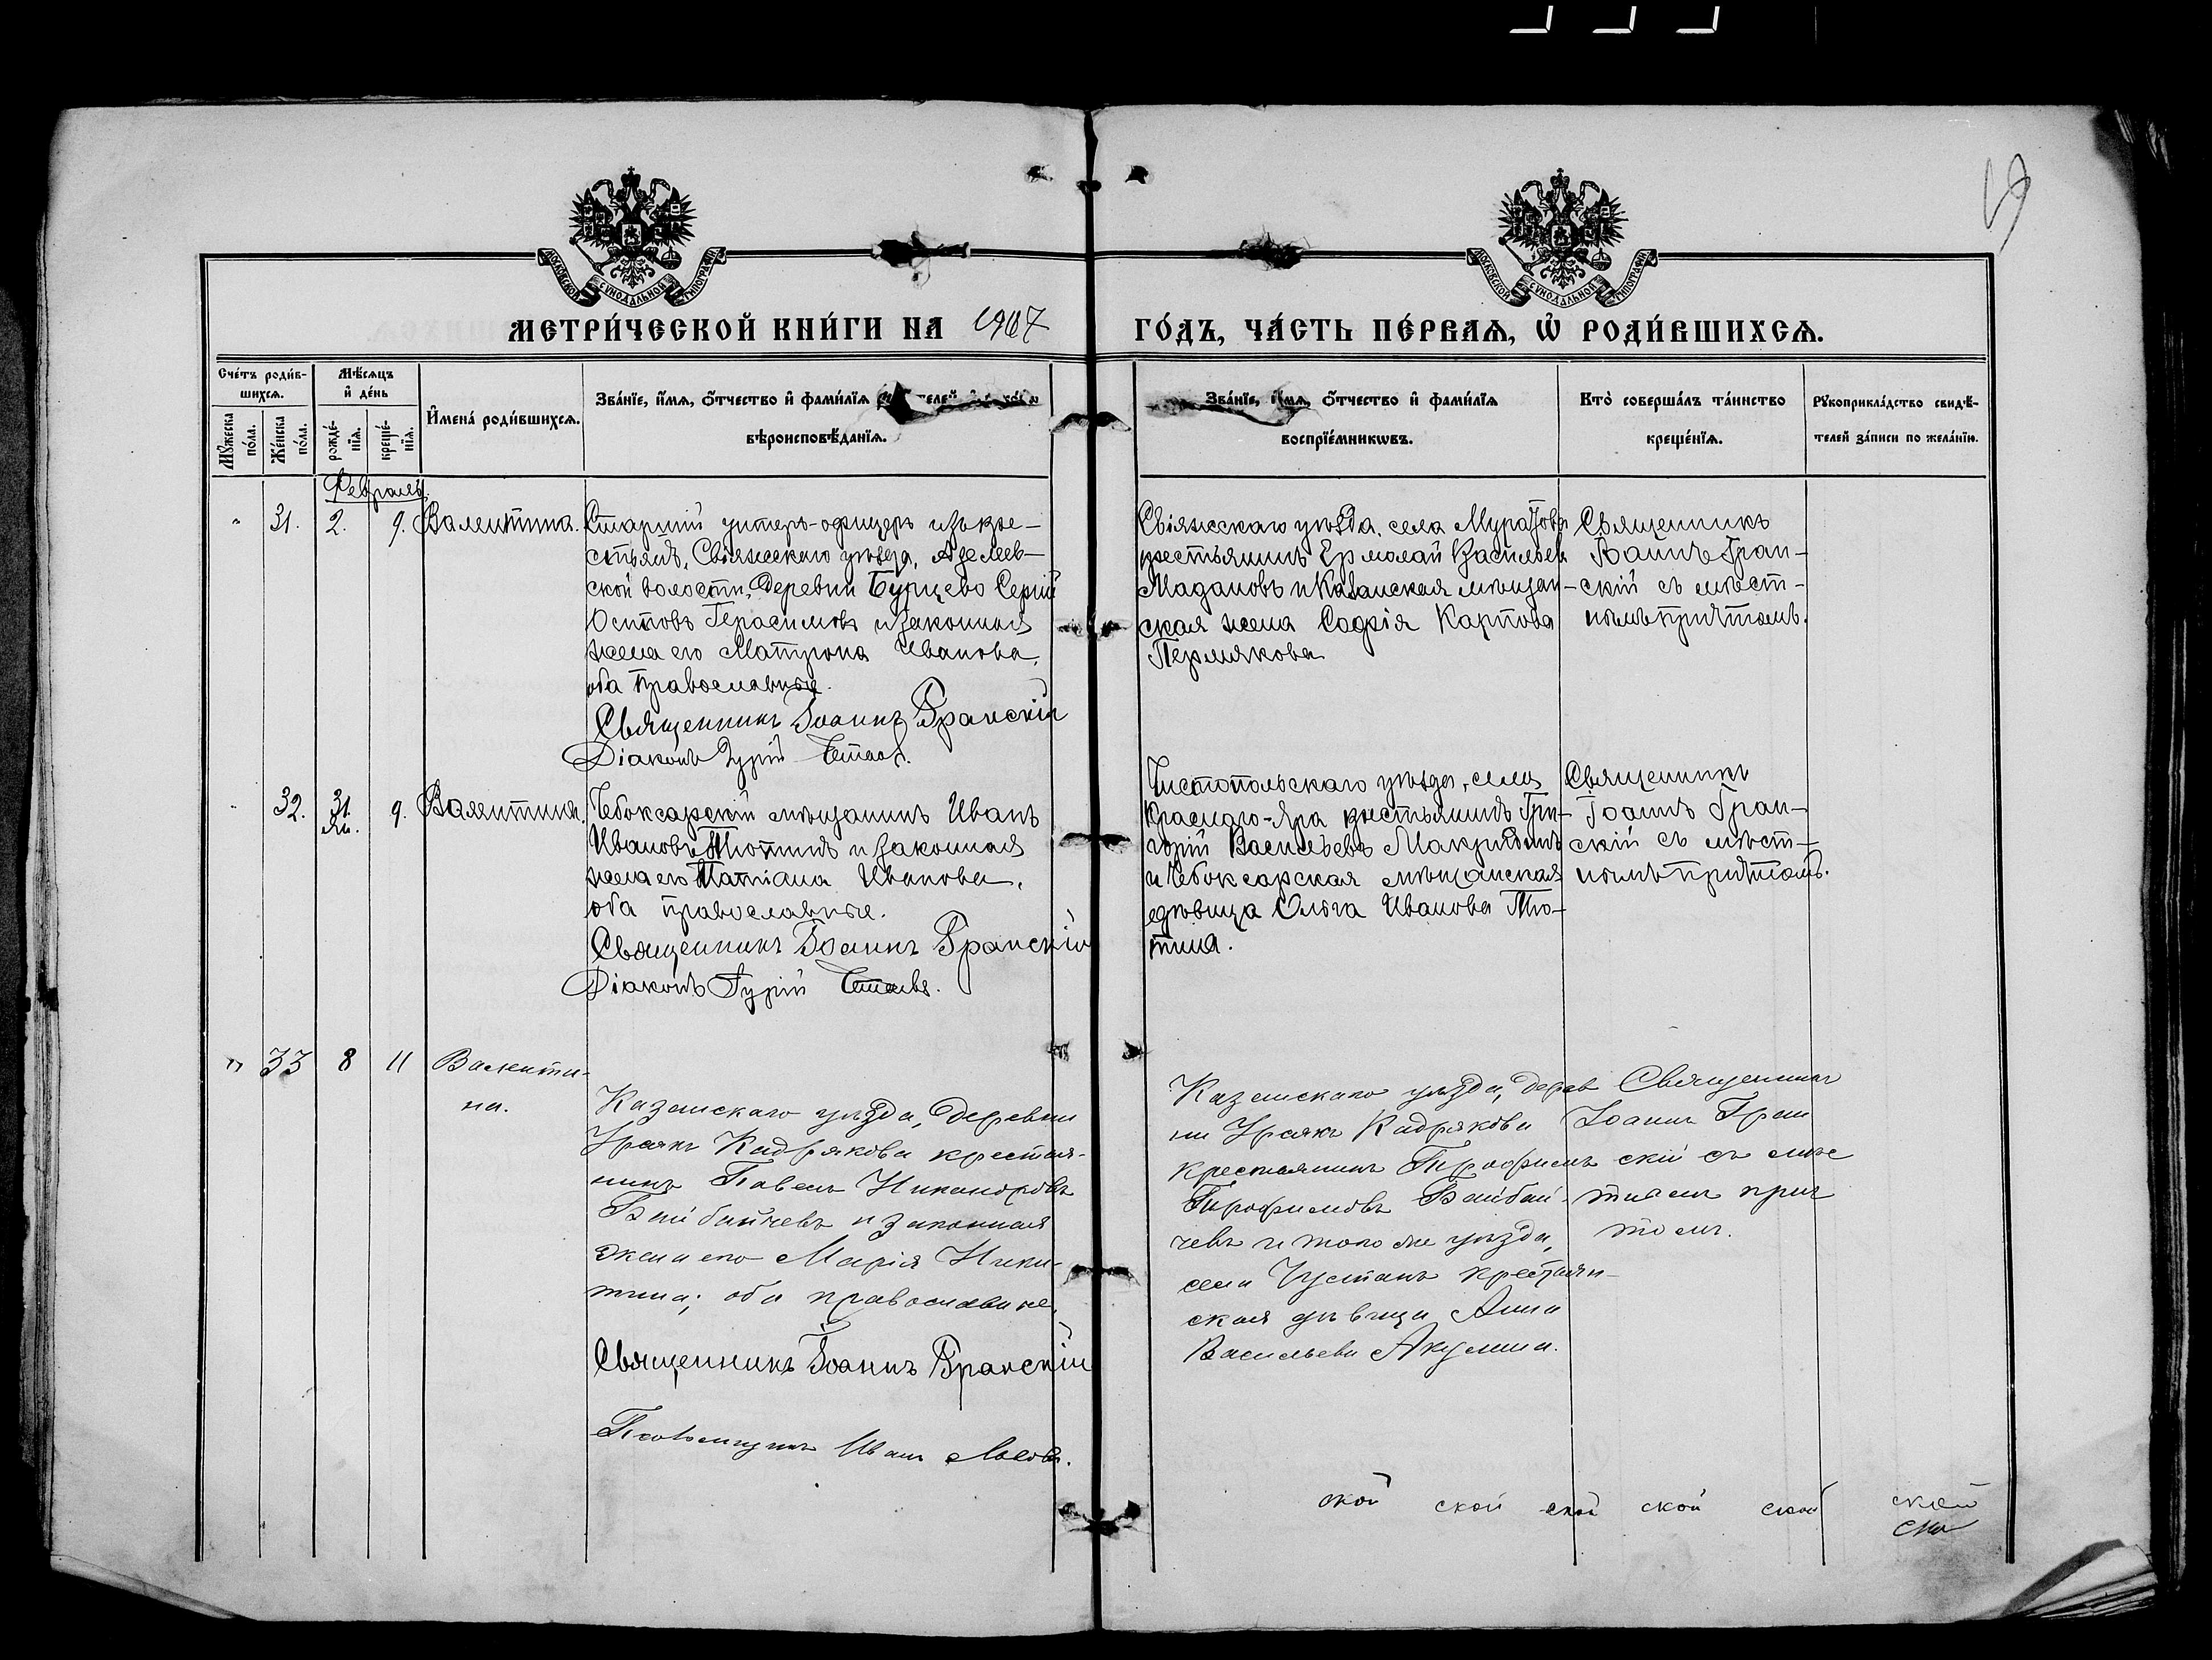 19
МОСКОВСКОЙ СѴНОДАЛЬНОЙ ТИПОГРАФІИ
МОСКОВСКОЙ СѴНОДАЛЬНОЙ ТИПОГРАФІИ
МЕТРИ́ЧЕСКОЙ КНИ́ГИ НА 1907 ГО́ДЪ, ЧА́СТЬ ПЕ́РВАѦ, Ѿ РОДИ́ВШИХСѦ.
Сче́тъ роди́в-
шихсѧ.
Мѣ́сѧцъ
и҆ де́нь
Мꙋ́жеска
по́ла.
Же́нска
по́ла.
рожде́-
нїѧ.
креще́-
нїѧ.
И҆мена̀ роди́вшихсѧ.
Зва́нїе, и҆́мѧ, о҆́тчество и҆ фами́лїѧ
вѣроисповѣ́данїѧ.
Зва́нїе, и҆́мѧ, о҆́тчество и҆ фами́лїѧ
воспрїе́мникѡвъ.
Кто̀ соверша́лъ та́инство
креще́нїѧ.
Рꙋкоприкла́дство свидѣ́-
телей за́писи по жела́нїю.
Февраль.
" 31. 2. 9. Валентина.
Старшій унтеръ-офицеръ изъ кре-
стьянъ, Свіяжскаго уѣзда, Азелеев-
ской волости, деревни Бурцево Сергій
Осиповъ Герасимовъ и законная
жена его Матрона Иванова,
оба православные.
Священникъ Іоаннъ Гранскій
Діаконъ Гурій
Свіяжскаго уѣзда, села Муратова
крестьянинъ Ермолай Васильев
Мадановъ и Казанская мѣщан-
ская жена Софія Карпова
Пермякова
Священникъ
Іоаннъ Гран-
скій съ мѣст-
нымъ причтомъ.
" 32. 31. Ян. 9. Валентина.
Чебоксарскій мѣщанинъ Иванъ
Ивановъ Тютинъ и законная
жена его Татіана Иванова,
оба православные.
Священникъ Іоаннъ Гранскій
Діаконъ Гурій
Чистопольскаго уѣзда, села
Краснаго-Яра крестьянинъ Гри-
горій Васильевъ Макридинъ
и Чебоксарская мѣщанская
дѣвица Ольга Иванова Тю-
тина.
Священникъ
Іоаннъ Гран-
скій съ мѣст-
нымъ причтомъ.
" 33 8 11 Валенти-
на.
Казанскаго уѣзда, деревни
Кадрякова крестья-
нинъ Павелъ Никаноровъ
Байбайчевъ и законная
жена его Марія Ники-
тина; оба православные.
Священникъ Іоаннъ Гранскій
Псаломщикъ Иванъ Львовъ.
Казанскаго уѣзда, дерев
ни Кадрякова
крестьянинъ Трофимъ
Трофимовъ Байбай-
чевъ и того же уѣзда,
села крестьян-
ская дѣвица Анна
Васильева Акулина.
Священникъ
Іоаннъ Гран
скій съ мѣс
тнымъ прич
томъ.
ской ской ской ской ской ской
ско